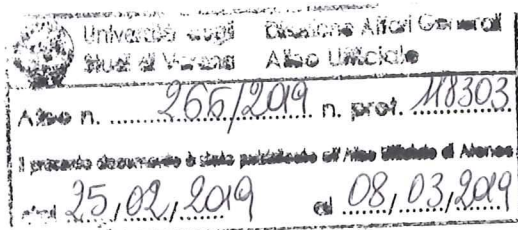 Università degli Direzione Affari Generali
Studi di Verona Albo Ufficiale
Albo n. 266/2019 n. prot. 118303
Il presente documento è stato pubblicato all'Albo Ufficiale di Ateneo
dal 25/02/2019 al 08/03/2019